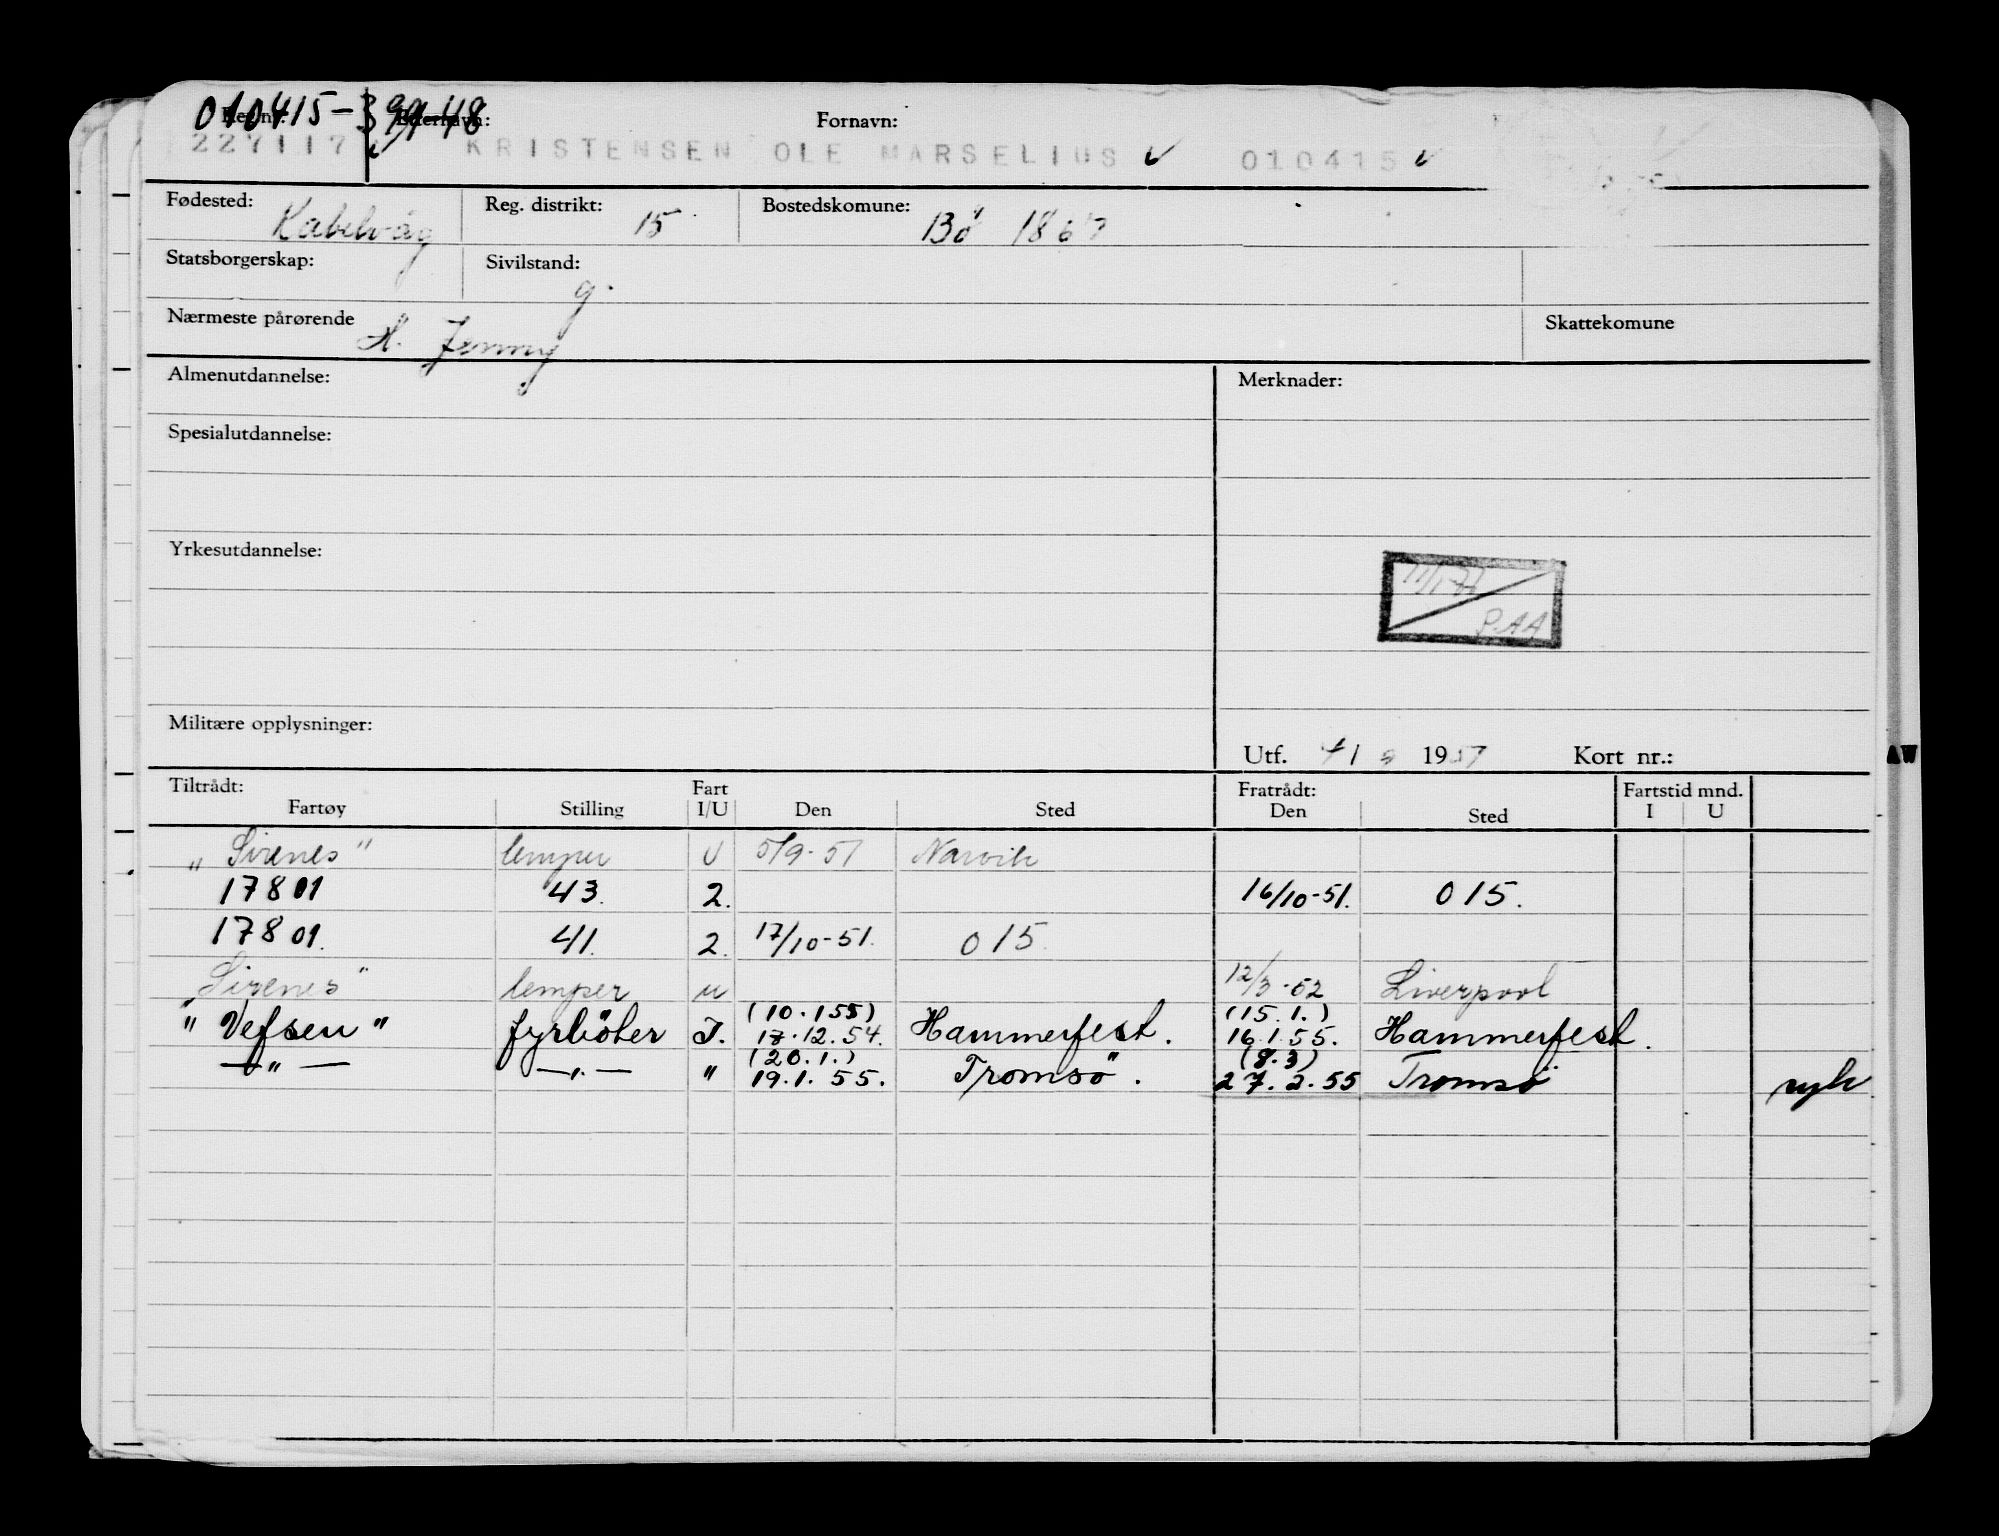 010415-39948
Reg.nr. Etternavn: Fornavn:
227117 KRISTENSEN OLE MARSELIUS ✓ 010415 ✓
Fødested: Kabelvåg Reg. distrikt: 15 Bostedskomune: Bö 1867
Statsborgerskap: Sivilstand: g.
Nærmeste pårørende H. Jenny Skattekomune
Almenutdannelse: Merknader:
Spesialutdannelse:
Yrkesutdannelse:
P.AA
Militære opplysninger:
Utf. 1951 Kort nr.:
Tiltrådt: Fart Fratrådt: Fartstid mnd.
Fartøy Stilling I/U Den Sted Den Sted I U
"Sirenes" lemper U 5/9-51 Narvik
17801 43. 2. 16/10-51. 015.
17801. 41. 2. 17/10-51. 015.
Sirenes" lemper u 12/3-52 Liverpool
(10.155) (15.1.)
"Vefsen" fyrböter I. 17.12.54. Hammerfest. 16.1.55. Hammerfest.
(20.1.) (8.3)
—"— —"— " 19.1.55. Tromsö. 27.2.55 Tromsö syk
AW